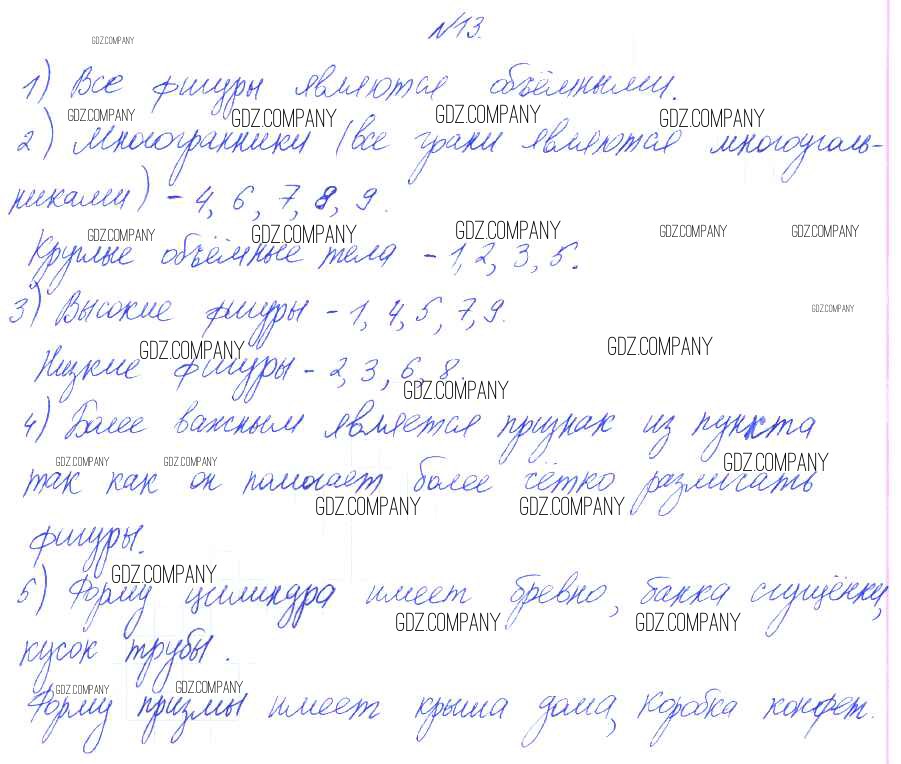 №13.
GDZ.COMPANY
1) Все фигуры являются объёмными.
GDZ.COMPANY GDZ.COMPANY GDZ.COMPANY GDZ.COMPANY
2) Многогранники (все грани являются многоуголь-
никами) - 4, 6, 7, 8, 9.
GDZ.COMPANY GDZ.COMPANY GDZ.COMPANY GDZ.COMPANY GDZ.COMPANY
Круглые объёмные тела - 1, 2, 3, 5.
3) Высокие фигуры - 1, 4, 5, 7, 9.
GDZ.COMPANY
GDZ.COMPANY GDZ.COMPANY
Низкие фигуры - 2, 3, 6, 8.
GDZ.COMPANY
4) Более важным является признак из пункта
GDZ.COMPANY GDZ.COMPANY GDZ.COMPANY
так как он помогает более чётко различать
GDZ.COMPANY GDZ.COMPANY
фигуры.
GDZ.COMPANY
5) Форму цилиндра имеет бревно, банка сгущёнки,
GDZ.COMPANY GDZ.COMPANY
кусок трубы.
GDZ.COMPANY GDZ.COMPANY
Форму призмы имеет крыша дома, коробка конфет.